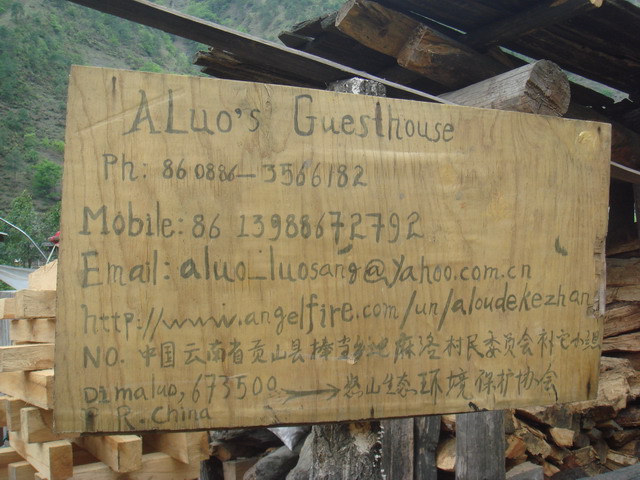 ALuo's Guesthouse
Ph: 86 0886-3566182
Mobile: 86 13988672792
Email: aluo_luosang@yahoo.com.cn
http://www.angelfire.com/un/aloudekezhan
NO. 中国云南省贡山县捧当乡迪麻洛村民委员会
Dimaluo, 673500 → 怒山生态环境保护协会
P. R. China